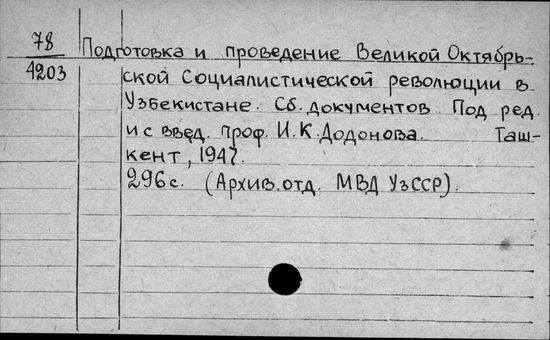 78
4203
Подготовка и проведение Великой Октябрь-
ской Социалистической революции в
Узбекистане. Сб. документов. Под ред.
и с введ. проф. И.К. Додонова. Таш-
кент, 1947.
296 с. (Архив. отд. МВД УзССР).